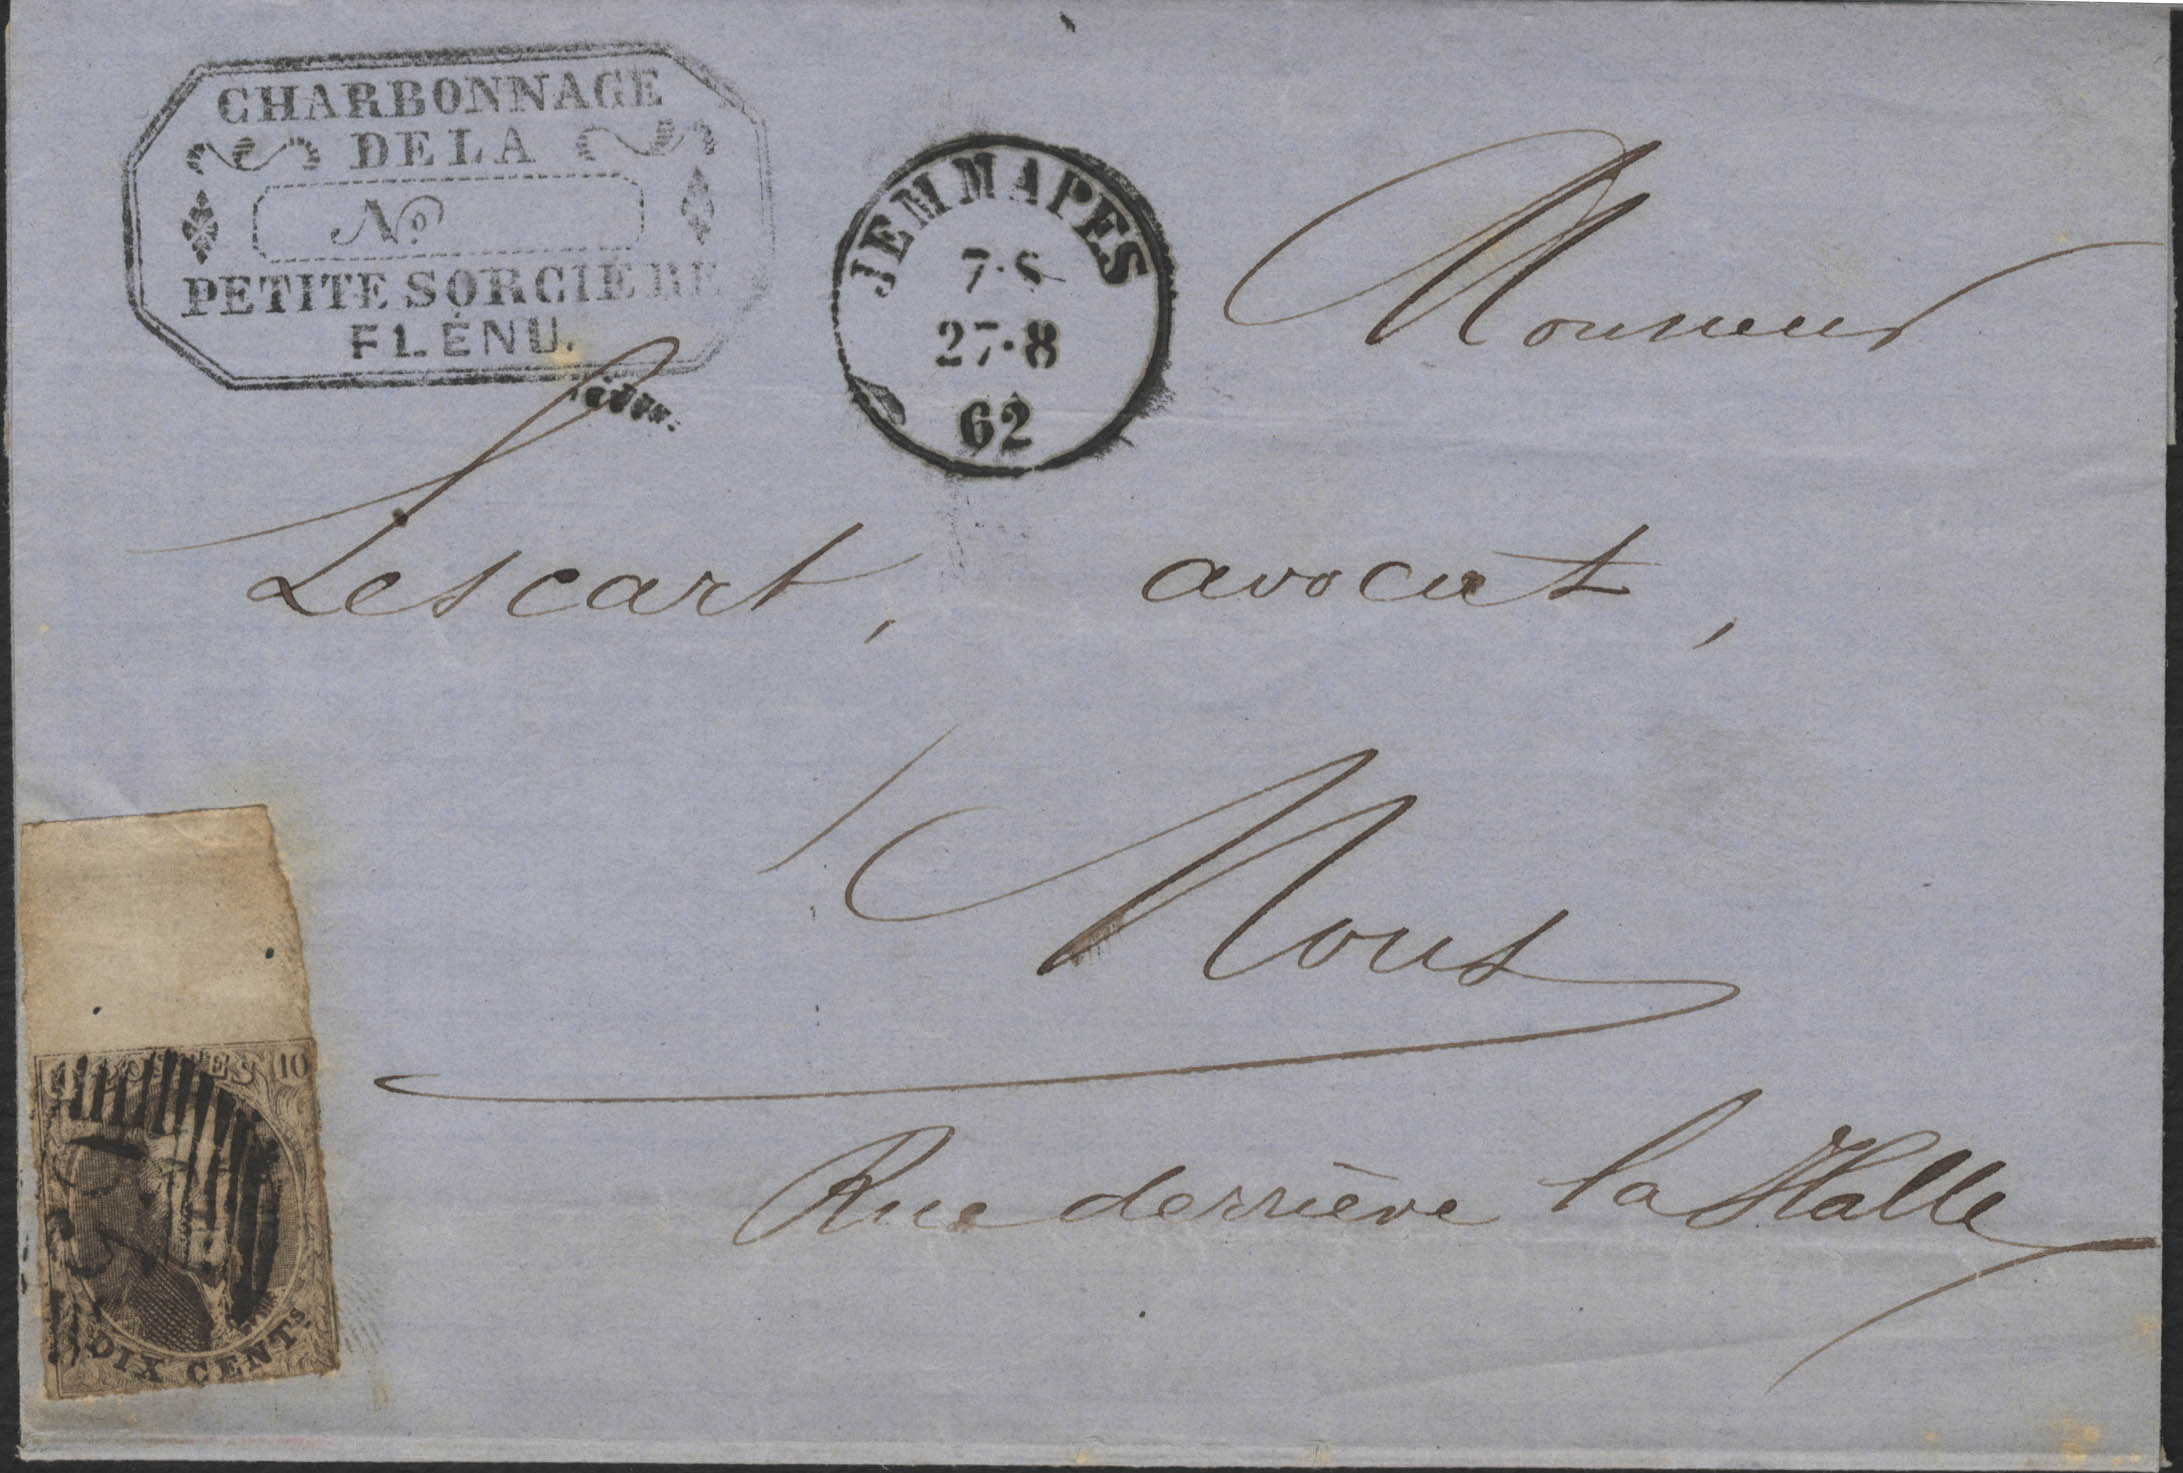 CHARBONNAGE
DE LA
No
PETITE SORCIÈRE
FLÉNU.
JEMMAPES
7·S
27·8
62
Monsieur
Lescart, avocat,
Mons
Rue derrière la Halle
POSTES 10
DIX CENTS